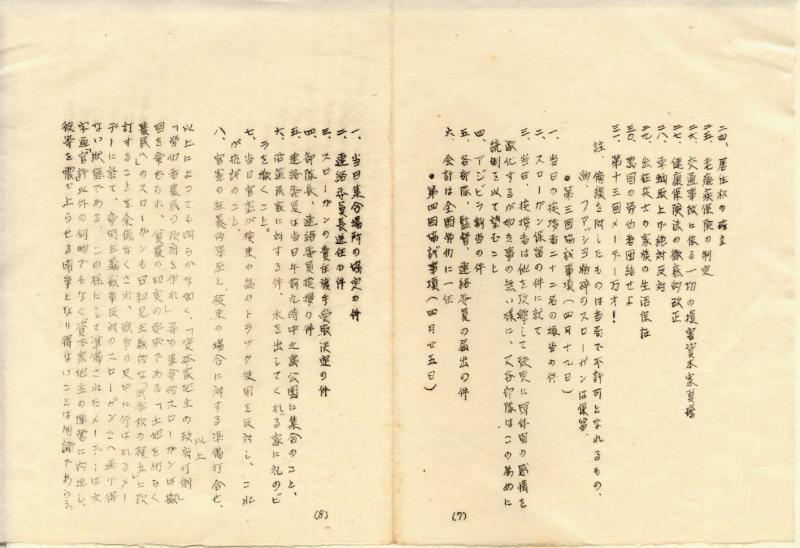 二四、居住权の確立
二五、老癈疾保険の制定
二六、交通事故に依る一切の損害資本家負担
二七、健康保険法の徹底的改正
二八、車輌取上げ絶対反対
二九、出征兵士の家族の生活保証
三〇、万国の労働者団結せよ
三一、第十三回メーデー万才!
註、傍線を附したものは当局で不許可となれるもの、
尚、ファッショ粉砕のスローガンは保留。
●第三回協議事項(四月十九日)
一、当日の指揮者二十二名の割当の件
二、スローガン保留の件に就て
三、当日、指揮者は他を攻撃して徒党に団体間の感情を
激化するが如き事の無い様に、又各部隊はこの為めに
統制を以て望むこと
四、アジビラ割当の件
五、各部隊、監督、連絡委員の届出の件
六、会計は全国労働に一任
●第四回協議事項(四月廿五日)
(7)
一、当日集合場所の協定の件
二、連絡委員長選任の件
三、スローガンの責任権手受取決定の件
四、部隊長、連絡委員指揮の件
五、連絡委員は当日午前九時中之島公園に集合のこと、
六、沿道民家に対する件 水を出してくれる家に礼のビ
ラを撒くこと。
七、当日官憲が検束の為のトラック使用を反対し、これ
が抗議のこと
八、官憲の狂暴的弾圧と、検束の場合に対する準備打合せ、
以上
以上によっても明らかな如く、「資本家地主の政府打倒」
「労働者農民の政府を作れ」等の革命的スローガンは撤
回を命ぜられ、貧農の切実の要求である「土地を働らく
農民へ」のスローガンも日和見主義的な「耕作权の確立」に改
訂することを余儀なくされ、戦争の只中に行はれるメー
デーに於て、帝国主義戦争反対のスローガン一つへ揚げ得
ない状態である。この様にして準備されたメーデーは文
字通官許以外の何物でもなく、資本家地主の陣営に
彼等を震え上らせる闘争となり得ないことは勿論であらう。
(8)